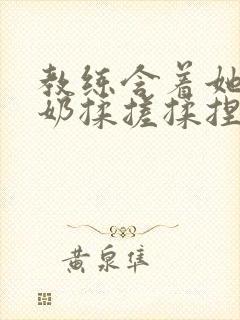 教练含着她
奶揉搓揉捏
黄泉隼